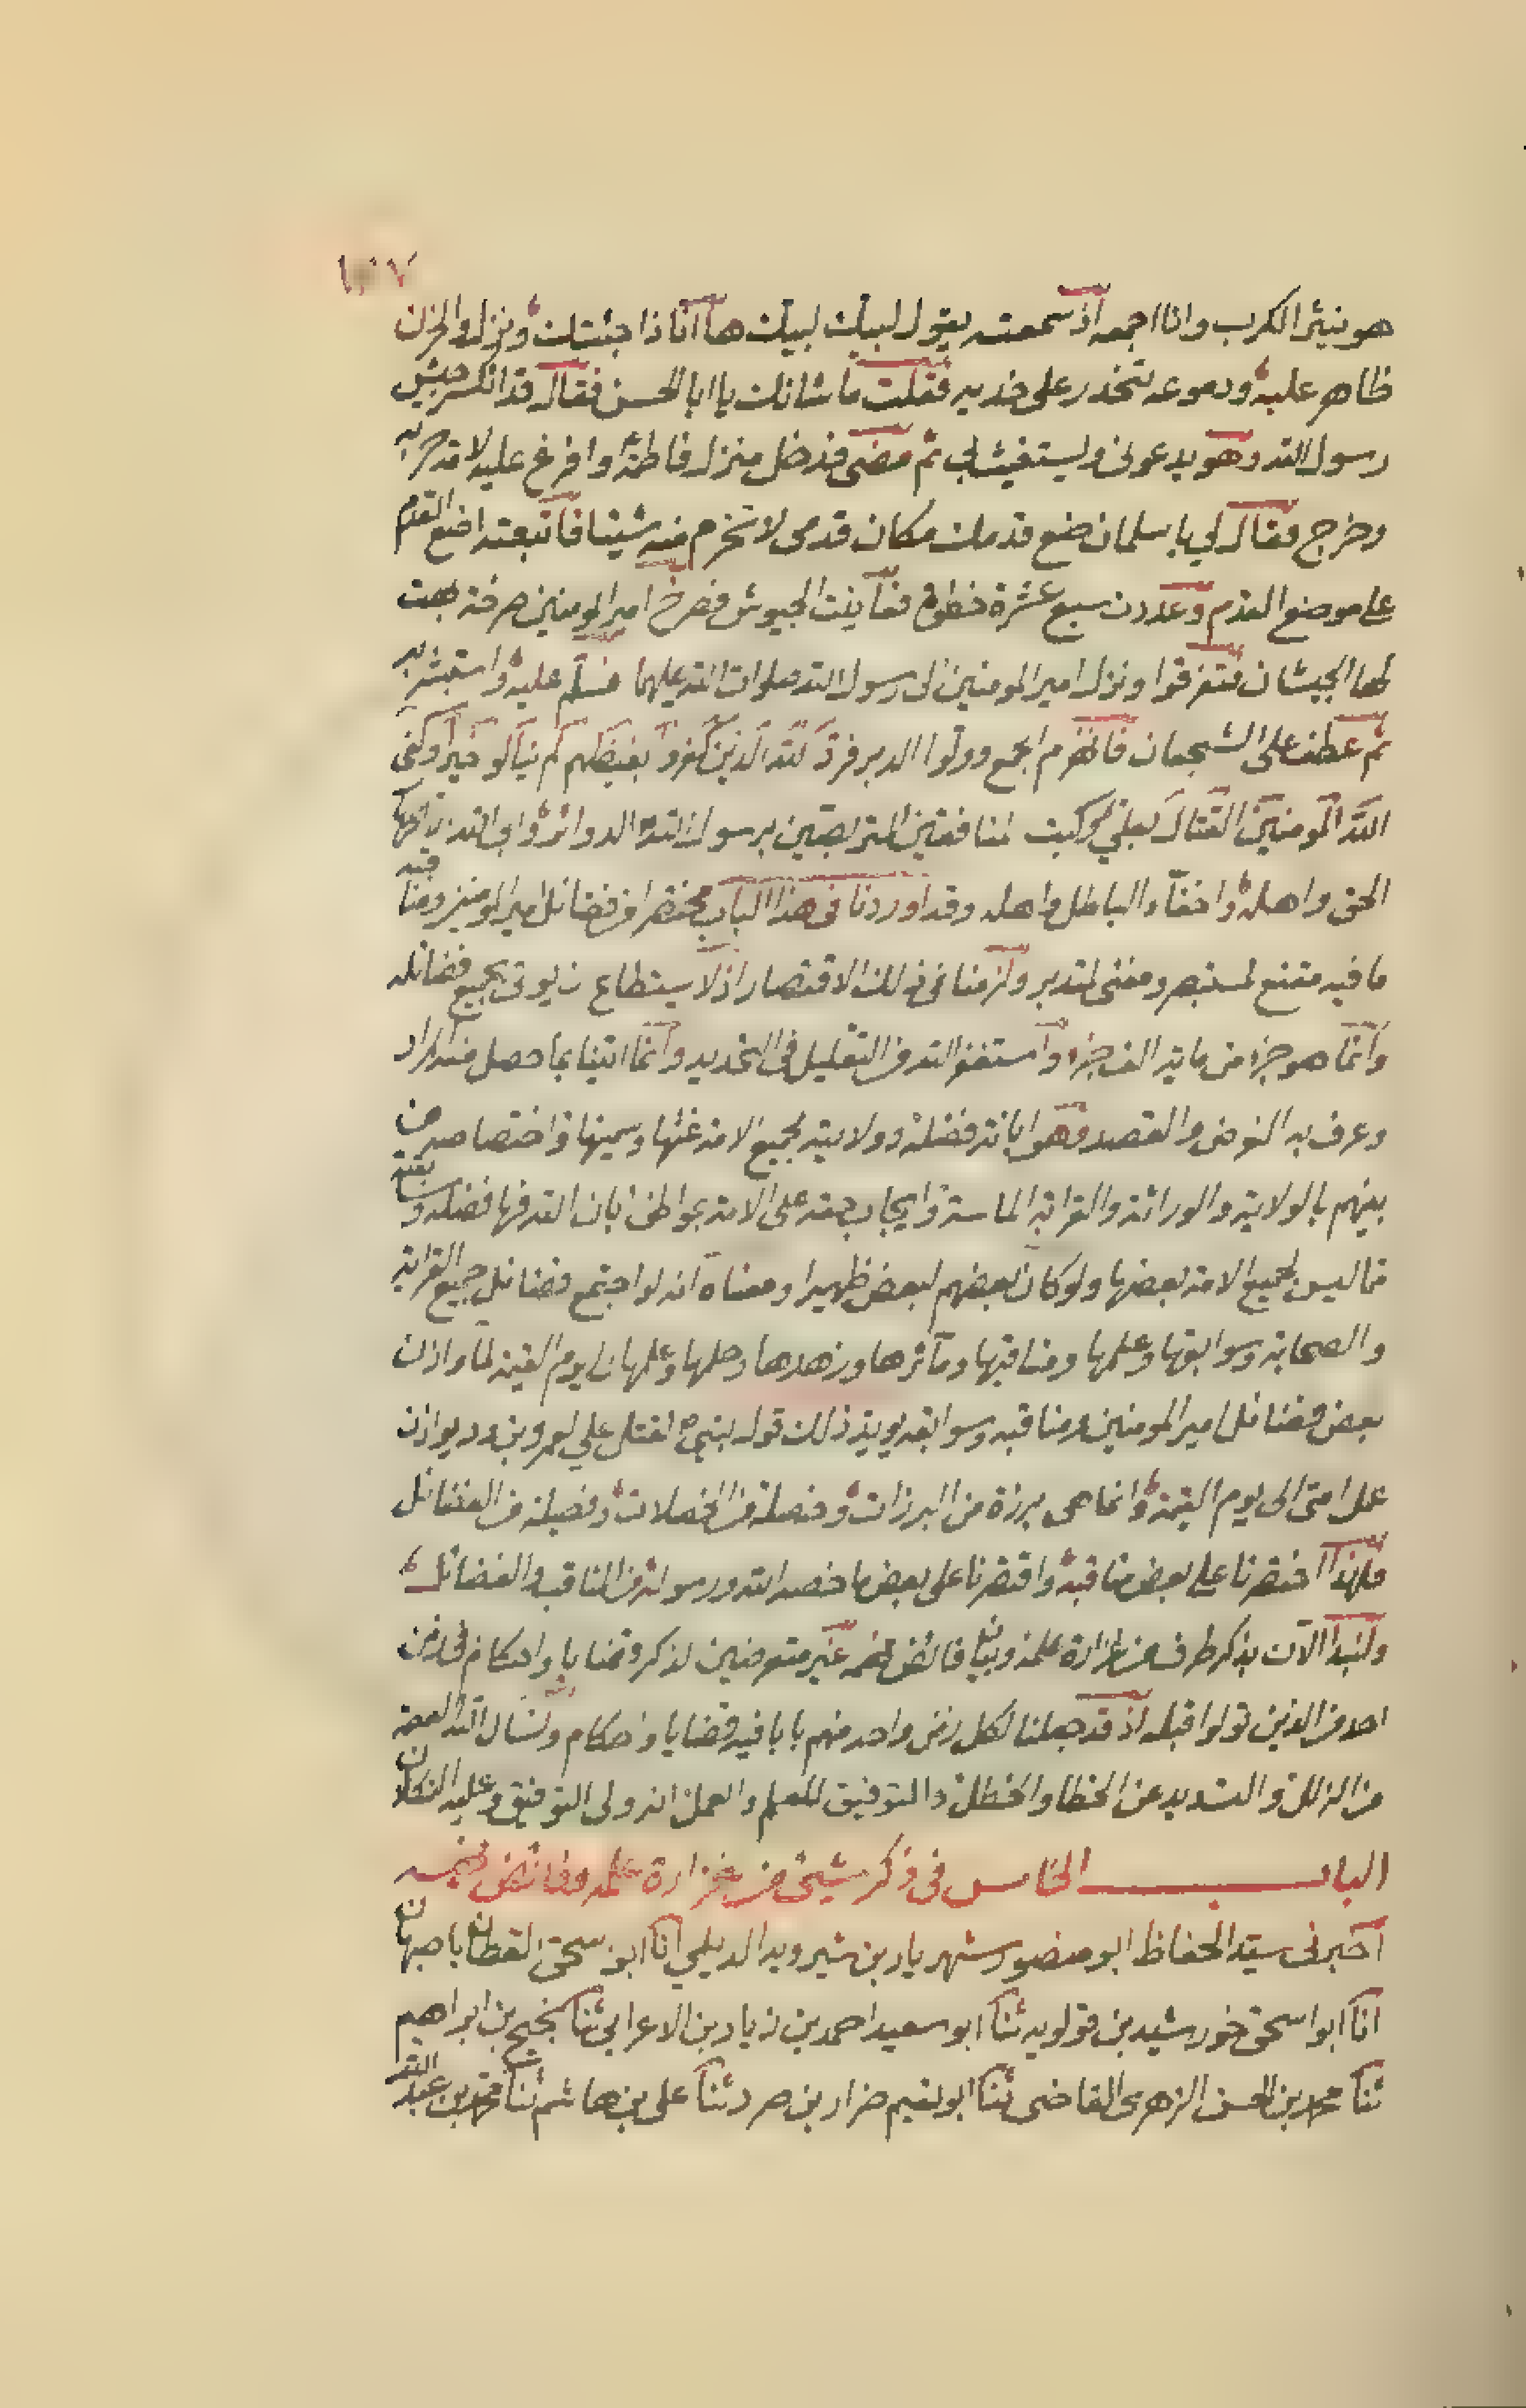 ١٥٧
هو ينبئ الكرب وانا اجمه اذ سمعته يقول لبيك لبيك ها انا ذا جئتك ونزل والحزن
ظاهر عليه ودموعه تتحدر على خديه فقلت ما شانك يا ابا الحسن فقال قد انكسر جيش
رسول الله وهو يدعونى ويستغيث بي ثم مضى فدخل منزل فاطمة وافرغ عليه لامة حربه
وخرج فقال لي يا سلمان ضع قدمك مكان قدمى لا تخرم منه شيئا فاتبعته اضع القدم
على موضع القدم وعددت سبع عشرة خطوة فعاينت الجيوش فصرخ امير المومنين صرخة بهت
لها الجيشان فتفرقوا ونزل امير المومنين الى رسول الله صلوات الله عليهما فسلم عليه واستبشر به
ثم عطف على الشجعان فانهزم الجمع وولوا الدبر فرد الله الذين كفروا بغيظهم لم ينالو خيرا وكفى
الله المومنين القتال بعلي وكبت المنافقين المتربصين برسول الله الدوائر وابى الله الا
الحق واهله واخفاء الباطل واهله وقد اوردنا فى هذا الباب مختصرا من فضائل امير المومنين ومناقبه
ما فيه مقنع لمستبصر ومغنى لمتدبر ولزمنا فى ذلك الاقتصار اذ لا يستطاع ان يوتى بجميع فضائله
وانما هو جزء من ماية الف جزء واستغفر الله من التقليل فى التحديد وانما اتينا بما حصل منه المراد
وعرف به الغرض والقصد وهو ابانة فضله وولايته لجميع الامة غثها وسمينها واختصاصه من
بينهم بالولاية والوراثة والقرابة الماسة وايجاب حقه على الامة بمواطن ابان الله فيها فضله
مما ليس لجميع الامة بعضها ولو كان بعضهم لبعض ظهيرا ومعناه انه لو اجتمع فضائل جميع القرابة
والصحابة وسوابقها وعلمها ومناقبها ومآثرها وزهدها وحلمها وعملها الى يوم القيمة لما وازن
بعض فضائل امير المومنين ومناقبه وسوابقه يويد ذلك قول النبي لقتل علي لعمرو بن ود يوازن
عمل امتى الى يوم القيمة وانما هى برزة من البرزات وخصلة من الخصلات وفضيلة من الفضائل
فلهذا اختصرنا على بعض مناقبه واقتصرنا على بعض ما خصه الله ورسوله من المناقب والفضائل
ولنبدا الآن بذكر طرف من غزارة علمه وفائض فهمه غير متعرضين لذكر قضايا واحكام فى زمن
احد من الذين تولوا قبله اذ قد جعلنا لكل زمن واحد منهم بابا فيه قضايا واحكام ونسال الله العصمة
من الزلل والتسديد عن الخطا والخطل والتوفيق للعلم والعمل انه ولى التوفيق وعليه التكلان
الباب الخامس فى ذكر شيئ من غزارة علمه وفائض فهمه
اخبرنى سيد الحفاظ ابو منصور شهريار بن شيرويه الديلمي انا ابو اسحق القطان باصبهان
انا ابو اسحق خورشيد بن قولويه ثنا ابو سعيد احمد بن زياد بن الاعرابي ثنا نجيح بن ابراهيم
ثنا محمد بن الحسن الزهرى القاضى ثنا ابو نعيم ضرار بن صرد ثنا على بن هاشم ثنا محمد بن عبد الله